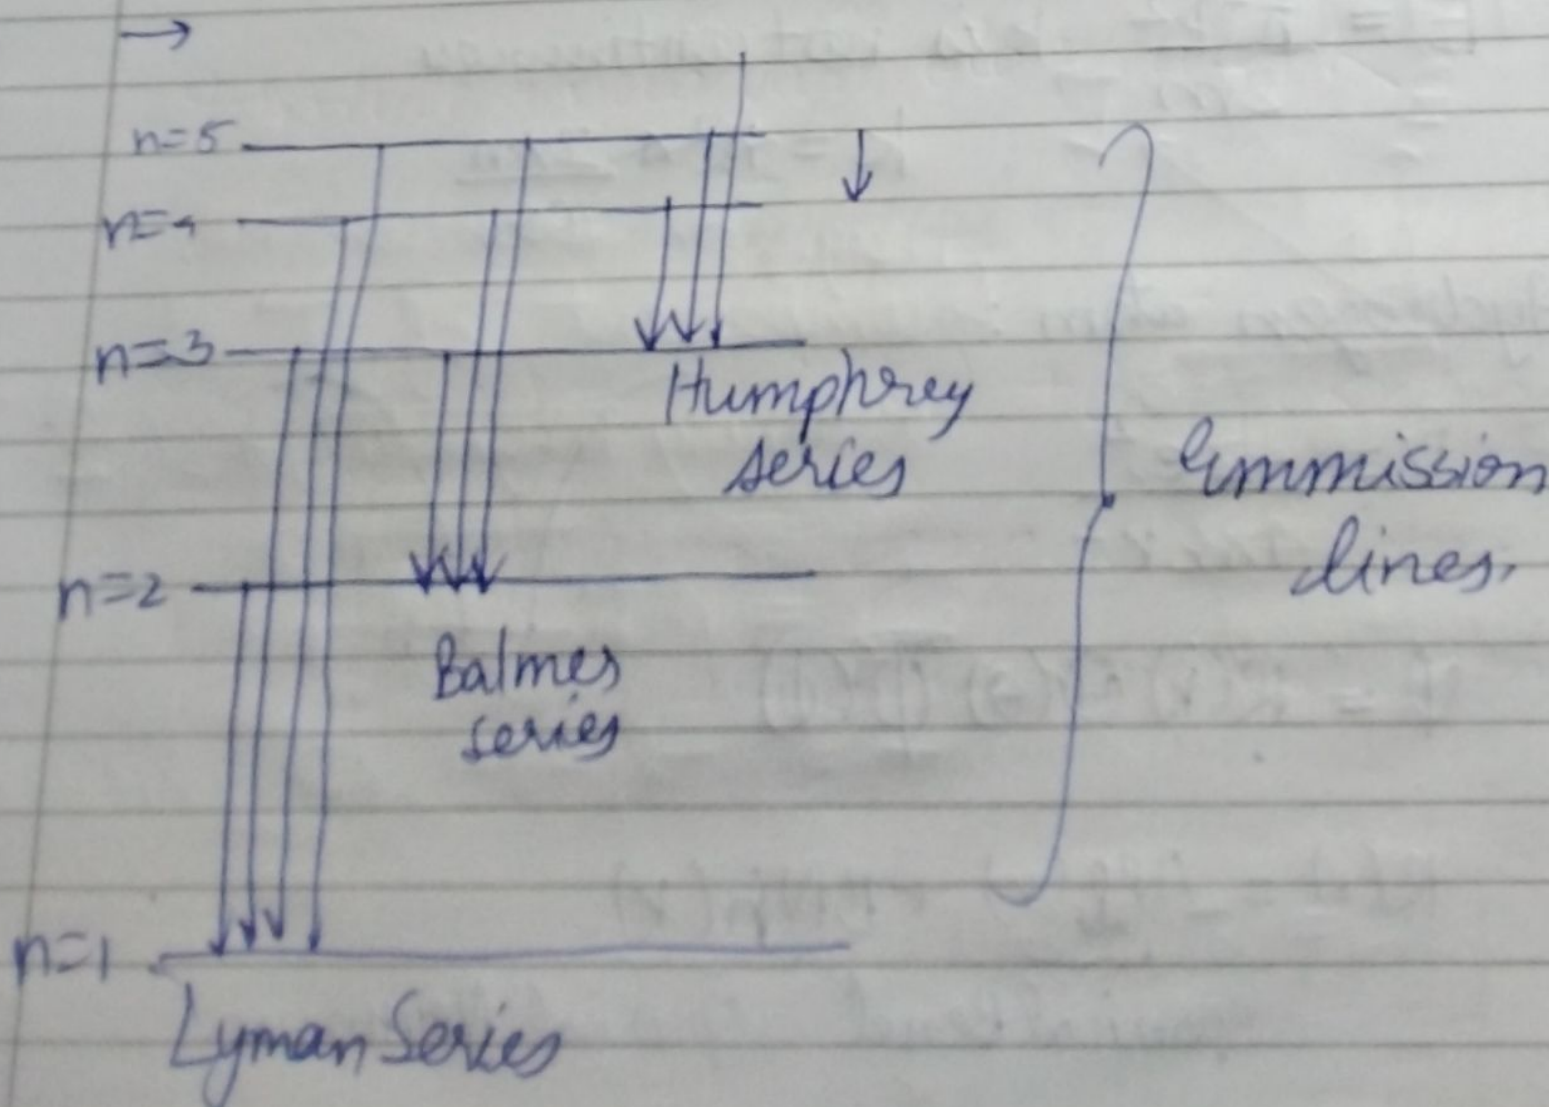 →
n=5
n=4
n=3
Humphrey
series
Emmission
lines,
n=2
Balmer
series
n=1
Lyman Series